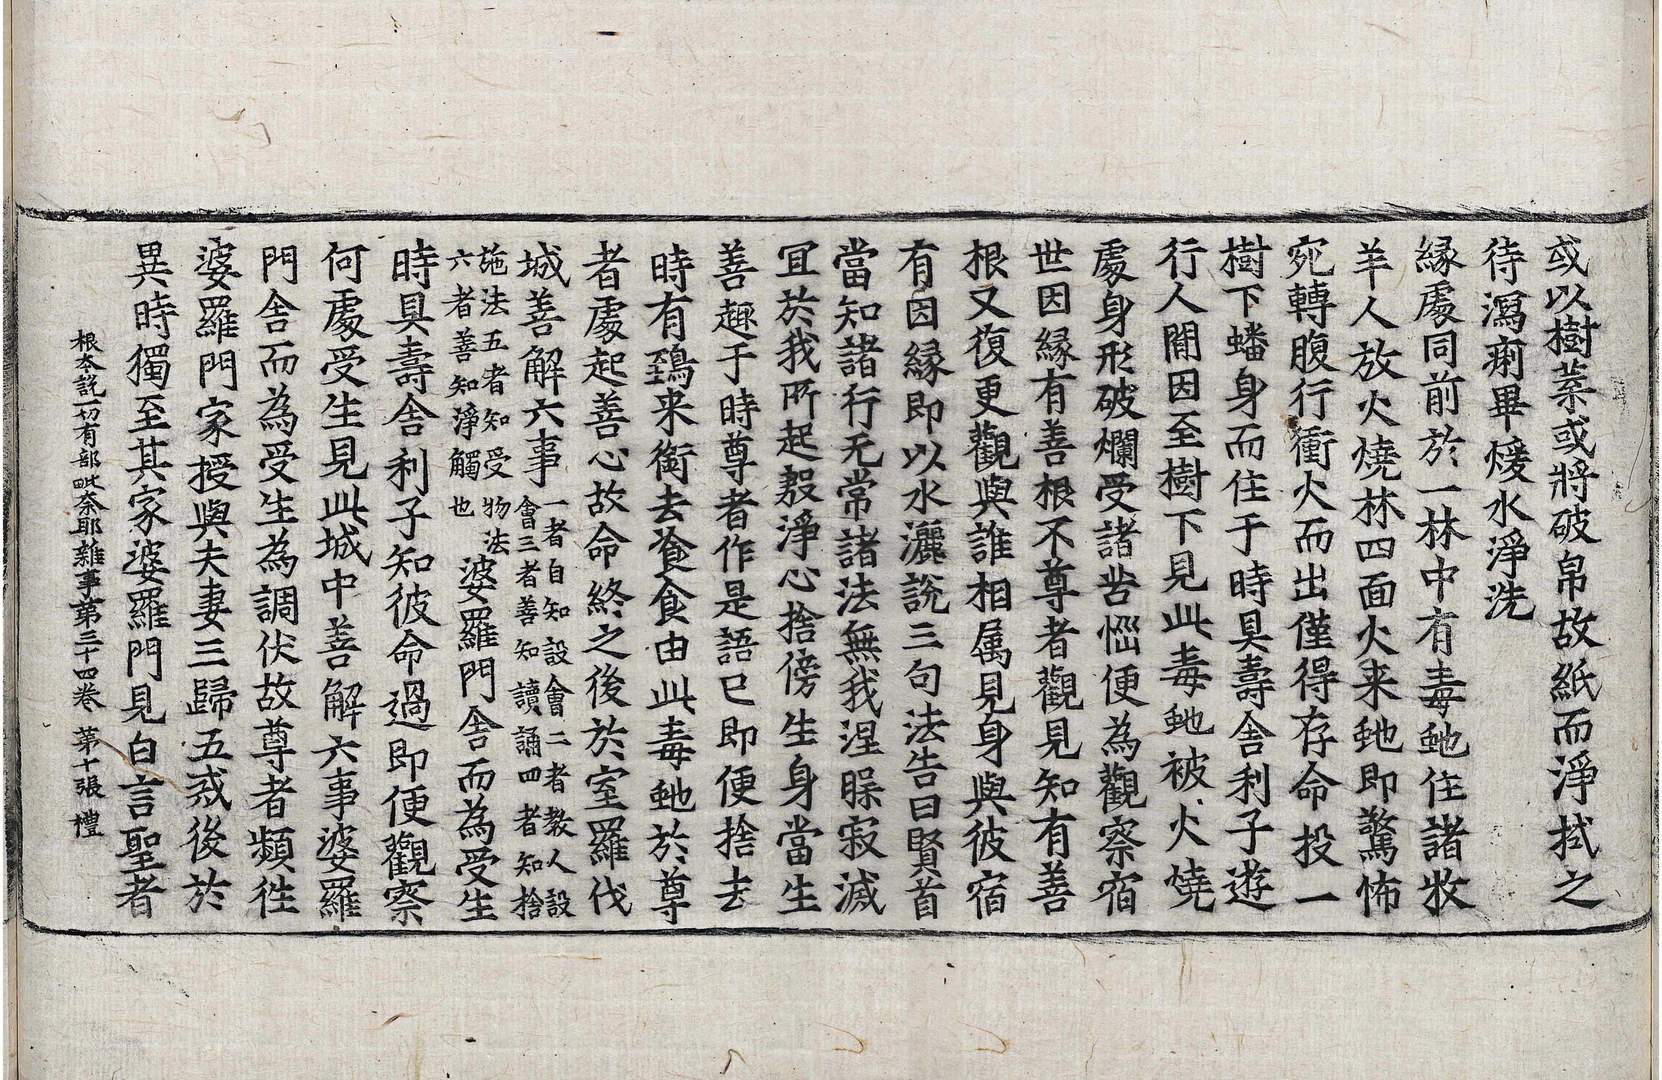 或以樹葉或將破帛故紙而淨拭之
待瀉痢畢煖水淨洗
縁處同前於一林中有毒虵住諸牧
羊人放火燒林四面火来虵即驚怖
宛轉腹行衝火而出僅得存命投一
樹下蟠身而住于時具壽舍利子遊
行人間因至樹下見此毒虵被火燒
處身形破爛受諸苦惱便為觀察宿
世因縁有善根不尊者觀見知有善
根又復更觀與誰相属見身與彼宿
有因縁即以水灑說三句法告曰賢首
當知諸行无常諸法無我涅槃寂滅
冝於我所起慇淨心捨傍生身當生
善趣于時尊者作是語已即便捨去
時有鵄来銜去飡食由此毒虵於尊
者處起善心故命終之後於室羅伐
城善解六事一者自知設會二者教人設會三者善知讀誦四者知捨
施法五者知受物法六者善知淨觸也婆羅門舍而為受生
時具壽舍利子知彼命過即便觀察
何處受生見此城中善解六事婆羅
門舍而為受生為調伏故尊者頻徃
婆羅門家授與夫妻三歸五戒後於
異時獨至其家婆羅門見白言聖者
根本說一切有部毗奈耶雜事第三十四卷 第十張 禮